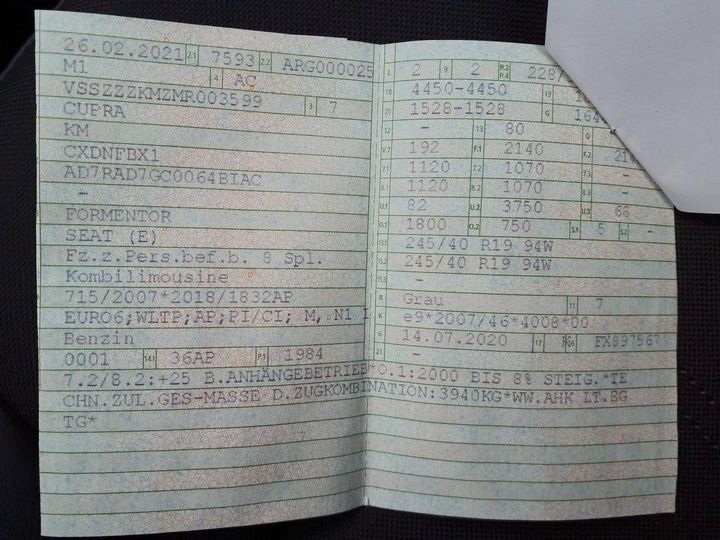 26.02.2021 2.1 7593 2.2 ARG000025
M1 4 AC
VSSZZZKMZMR003599 3 7
CUPRA
KM
CXDNFBX1
AD7RAD7GC0064BIAC
-
FORMENTOR
SEAT (E)
Fz.z.Pers.bef.b. 8 Spl.
Kombilimousine
715/2007*2018/1832AP
EURO6;WLTP;AP;PI/CI; M, N1 I
Benzin
0001 14.1 36AP P.1 1984
L 2 9 2 P.2 P.4 228/
18 4450-4450 19
20 1528-1528 G 164
12 - 13 80 Q
V.7 192 F.1 2140 F.2 214
7.1 1120 7.2 1070 7.3 -
8.1 1120 8.2 1070 8.3 -
U.1 82 U.2 3750 U.3 66
O.1 1800 O.2 750 S.1 5 S.2 -
15.1 245/40 R19 94W
15.2 245/40 R19 94W
15.3 -
R Grau 11 7
K e9*2007/46*4008*00
6 14.07.2020 17 K 16 FX897567
21 -
7.2/8.2:+25 B.ANHÄNGEBETRIEB*O.1:2000 BIS 8% STEIG.*TE
CHN.ZUL.GES-MASSE*D.ZUGKOMBINATION:3940KG*WW.AHK LT.EG
TG*